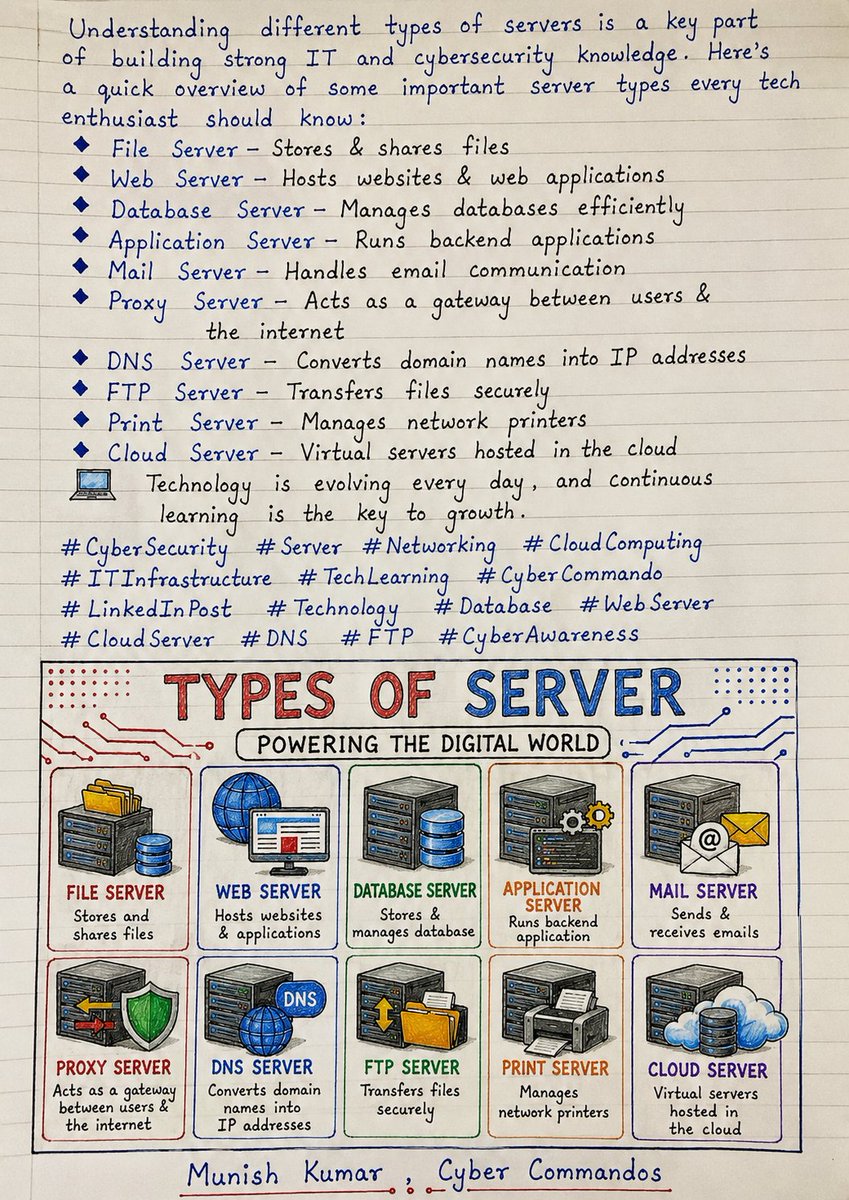 Understanding different types of servers is a key part
of building strong IT and cybersecurity knowledge. Here's
a quick overview of some important server types every tech
enthusiast should know:
◆ File Server – Stores & shares files
◆ Web Server – Hosts websites & web applications
◆ Database Server – Manages databases efficiently
◆ Application Server – Runs backend applications
◆ Mail Server – Handles email communication
◆ Proxy Server – Acts as a gateway between users &
the internet
◆ DNS Server – Converts domain names into IP addresses
◆ FTP Server – Transfers files securely
◆ Print Server – Manages network printers
◆ Cloud Server – Virtual servers hosted in the cloud
Technology is evolving every day, and continuous
learning is the key to growth.
#CyberSecurity #Server #Networking #CloudComputing
#ITInfrastructure #TechLearning #CyberCommando
#LinkedInPost #Technology #Database #WebServer
#CloudServer #DNS #FTP #CyberAwareness
TYPES OF SERVER
POWERING THE DIGITAL WORLD
FILE SERVER
Stores and
shares files
WEB SERVER
Hosts websites
& applications
DATABASE SERVER
Stores &
manages database
APPLICATION
SERVER
Runs backend
application
@
MAIL SERVER
Sends &
receives emails
PROXY SERVER
Acts as a gateway
between users &
the internet
DNS
DNS SERVER
Converts domain
names into
IP addresses
FTP SERVER
Transfers files
securely
PRINT SERVER
Manages
network printers
CLOUD SERVER
Virtual servers
hosted in
the cloud
Munish Kumar, Cyber Commandos